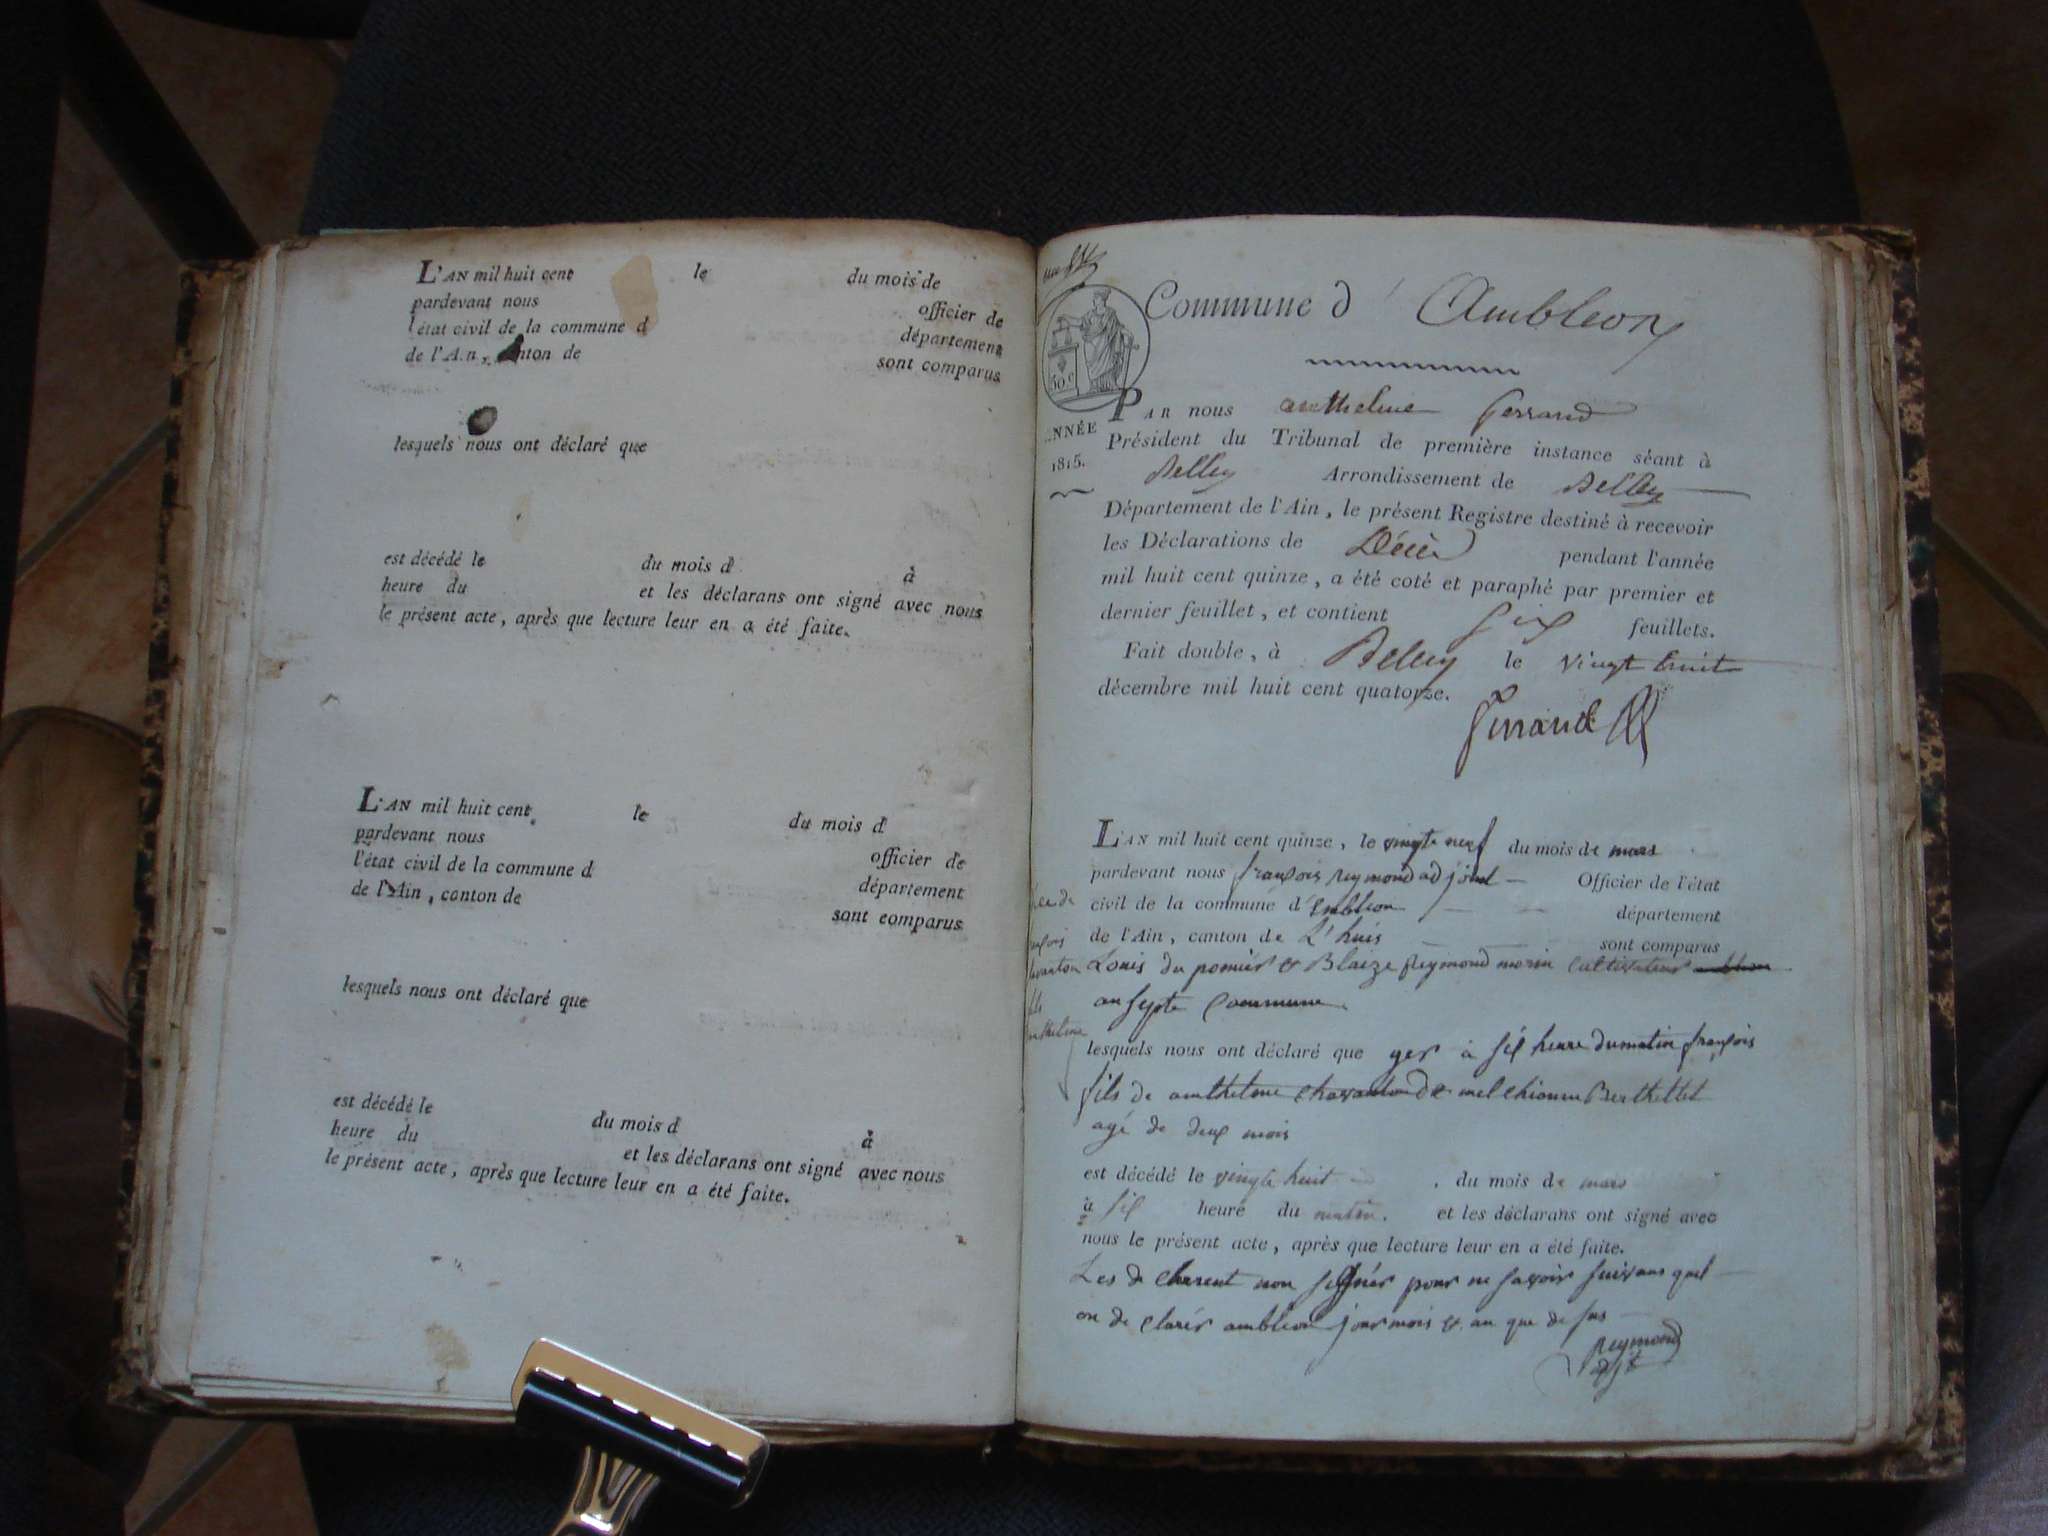 L'AN mil huit cent le du mois de
pardevant nous officier de
l'état civil de la commune d département
de l'Ain, canton de sont comparus
lesquels nous ont déclaré que
est décédé le du mois d à
heure du et les déclarans ont signé avec nous
le présent acte, après que lecture leur en a été faite.
L'AN mil huit cent le du mois d
pardevant nous officier de
l'état civil de la commune d département
de l'Ain, canton de sont comparus
lesquels nous ont déclaré que
est décédé le du mois d à
heure du et les déclarans ont signé avec nous
le présent acte, après que lecture leur en a été faite.
Commune d' Ambleon
50.c
ANNÉE
1815.
PAR nous anthelme ferrand
Président du Tribunal de première instance séant à
Belley Arrondissement de Belley
Département de l'Ain, le présent Registre destiné à recevoir
les Déclarations de Décès pendant l'année
mil huit cent quinze, a été coté et paraphé par premier et
dernier feuillet, et contient six feuillets.
Fait double, à Belley le vingt huit
décembre mil huit cent quatorze.
ferrand
L'AN mil huit cent quinze, le vingte neuf du mois de mars
pardevant nous françois reymond adjoint Officier de l'état
civil de la commune d'Embleon département
de l'Ain, canton de L'huis sont comparus
Louis du pomier & Blaize Reymond morin cultivateur
commune
lesquels nous ont déclaré que yer à six heure du matin françois
fils de anthelme chavanton & de melchionne Berthellet
agé de deux mois
est décédé le vingte huit du mois de mars
à six heure du matin. et les déclarans ont signé avec
nous le présent acte, après que lecture leur en a été faite.
Les de clarent non signés pour ne savoir suivans quil
on de clarér ambleon jour mois & an que de sus
Reymond
adjt